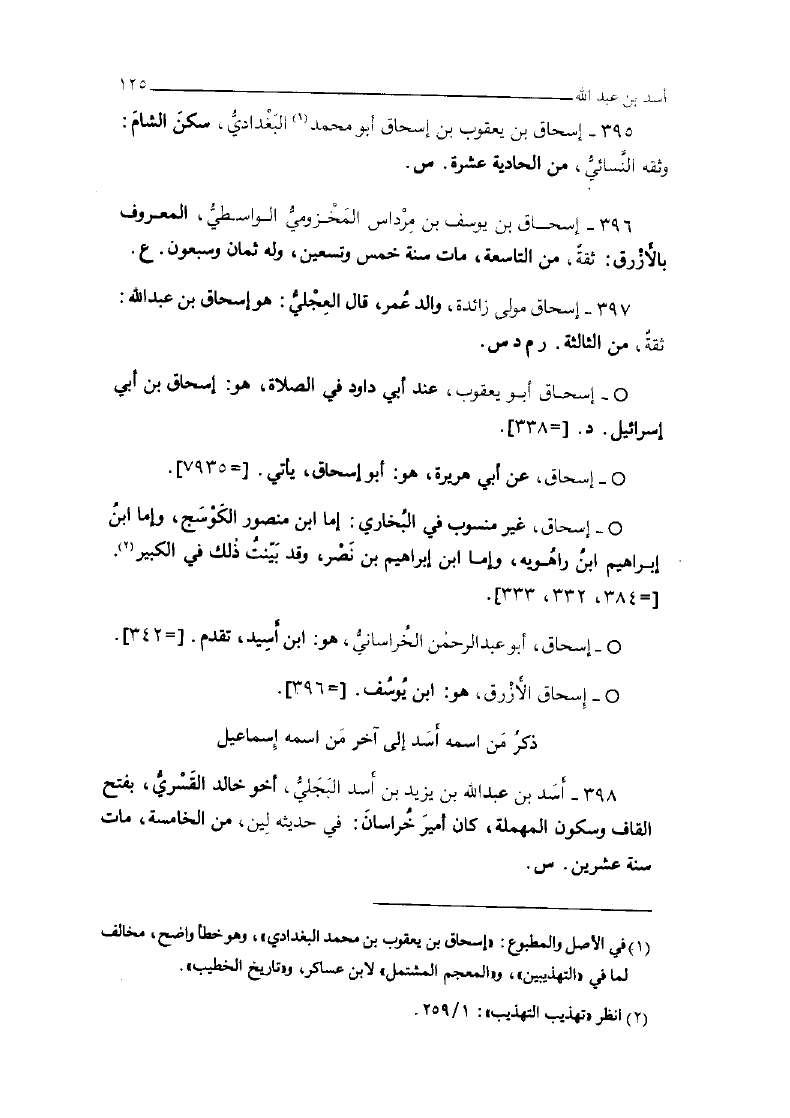 أسد بن عبد الله ١٢٥
٣٩٥ ـ إسحاق بن يعقوب بن إسحاق أبو محمد(١) البَغْداديُّ، سكنَ الشامَ:
وثقه النَّسائيُّ، من الحادية عشرة. س.
٣٩٦ ـ إسحاق بن يوسف بن مِرْداس المَخْزوميُّ الواسطيُّ، المعروف
بالأَزْرق: ثقةٌ، من التاسعة، مات سنة خمس وتسعين، وله ثمان وسبعون. ع.
٣٩٧ ـ إسحاق مولى زائدة، والد عُمر، قال العِجْليُّ: هو إسحاق بن عبدالله:
ثقةٌ، من الثالثة. ر م د س.
○ ـ إسحاق أبو يعقوب، عند أبي داود في الصلاة، هو: إسحاق بن أبي
إسرائيل. د. [=٣٣٨].
○ ـ إسحاق، عن أبي هريرة، هو: أبو إسحاق، يأتي. [=٧٩٣٥].
○ ـ إسحاق، غير منسوب في البُخاري: إما ابن منصور الكَوْسَج، وإما ابنُ
إبراهيم ابنُ راهُويه، وإما ابن إبراهيم بن نَصْر، وقد بَيّنتُ ذٰلك في الكبير(٢).
[=٣٨٤، ٣٣٢، ٣٣٣].
○ ـ إسحاق، أبو عبدالرحمٰن الخُراسانيُّ، هو: ابن أَسِيد، تقدم. [=٣٤٢].
○ ـ إسحاق الأَزْرق، هو: ابن يُوسُف. [=٣٩٦].
ذكرُ مَن اسمه أَسَد إلى آخر مَن اسمه إسماعيل
٣٩٨ ـ أَسَد بن عبدالله بن يزيد بن أَسد البَجَليُّ، أخو خالد القَسْريُّ، بفتح
القاف وسكون المهملة، كان أميرَ خُراسانَ: في حديثه لِين، من الخامسة، مات
سنة عشرين. س.
(١) في الأصل والمطبوع: «إسحاق بن يعقوب بن محمد البغدادي»، وهو خطأ واضح، مخالف
لما في «التهذيبين»، و«المعجم المشتمل» لابن عساكر، و«تاريخ الخطيب».
(٢) انظر «تهذيب التهذيب»: ٢٥٩/١.